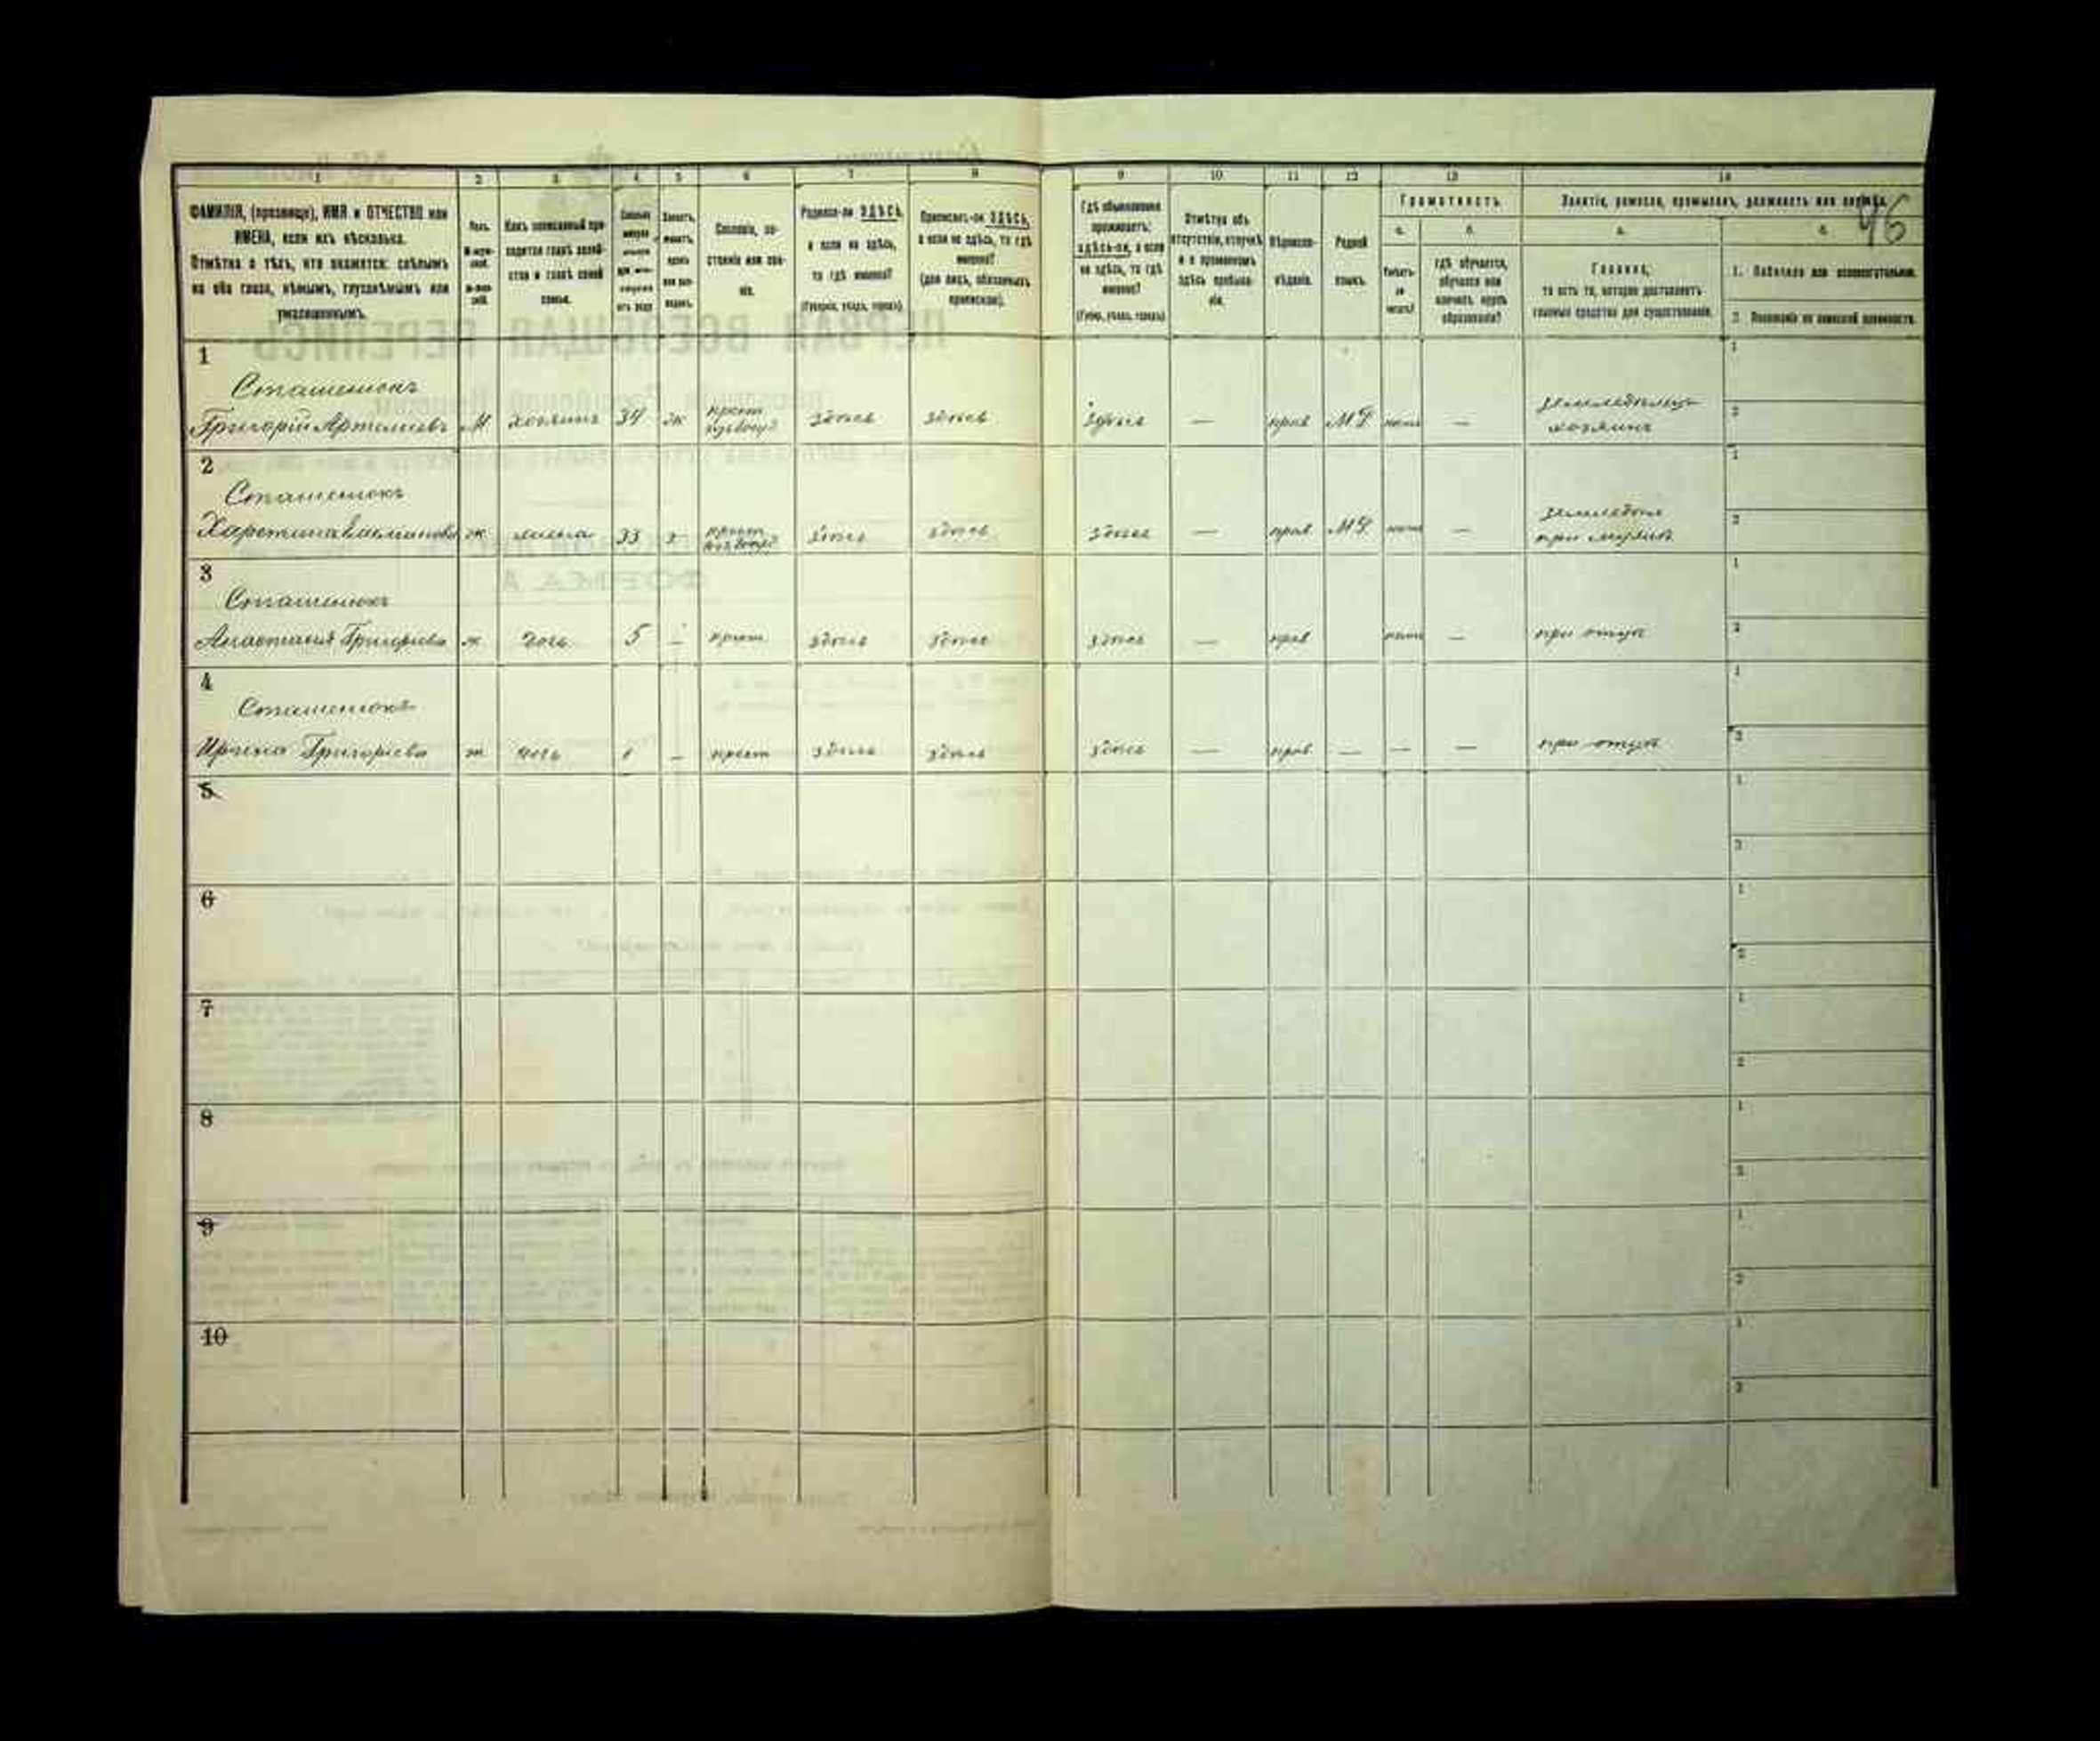 1 2 3 4 5 6 7 8 9 10 11 12 13 14
46
ФАМИЛІЯ, (прозвище), ИМЯ и ОТЧЕСТВО или
ИМЕНА, если ихъ нѣсколько.
Отмѣтка о тѣхъ, кто окажется: слѣпымъ
на оба глаза, нѣмымъ, глухонѣмымъ или
умалишеннымъ.
Полъ.
Какъ записанный при-
ходится главѣ хозяй-
ства и главѣ своей
семьи.
Сословіе, со-
стояніе или зва-
ніе.
Родился-ли ЗДѢСЬ,
а если не здѣсь,
то гдѣ именно?
(Губернія, уѣздъ, городъ)
Приписанъ-ли ЗДѢСЬ,
а если не здѣсь, то гдѣ
именно?
(для лицъ, обязанныхъ
припиской).
Гдѣ обыкновенно
проживаетъ:
здѣсь-ли, а если
не здѣсь, то гдѣ
именно?
(Губер, уѣздъ, городъ)
Отмѣтка объ
отсутствіи, отлучкѣ
и о временномъ
здѣсь пребыва-
ніи.
Вѣроиспо-
вѣданіе.
Родной
языкъ.
Грамотность.
а.
Умѣетъ-
ли
читать?
б.
гдѣ обучается,
обучался или
кончилъ курсъ
образованія?
Занятіе, ремесло, промыселъ, должность или служба.
а.
Главное,
то есть то, которое доставляетъ
главныя средства для существованія.
б.
1. Побочное или вспомогательное.
2. Положеніе по воинской повинности.
1
Сташенюкъ
Григорій Артемиевъ М хозяинъ 34 ж крест здѣсь здѣсь здѣсь — прав М.Р. нѣтъ — земледѣлецъ
хозяинъ
2
Сташенюкъ
Харетина Емелианова ж жена 33 з крест здѣсь здѣсь здѣсь — прав М.Р. нѣтъ —
при мужѣ
3
Сташенюкъ
Анастасия Григориева ж дочь 5 — крест здѣсь здѣсь здѣсь — прав нѣтъ — при отцѣ
4
Сташенюкъ
Ирина Григориева ж дочь 1 — крест здѣсь здѣсь здѣсь — прав — — — при отцѣ
5
6
7
8
9
10